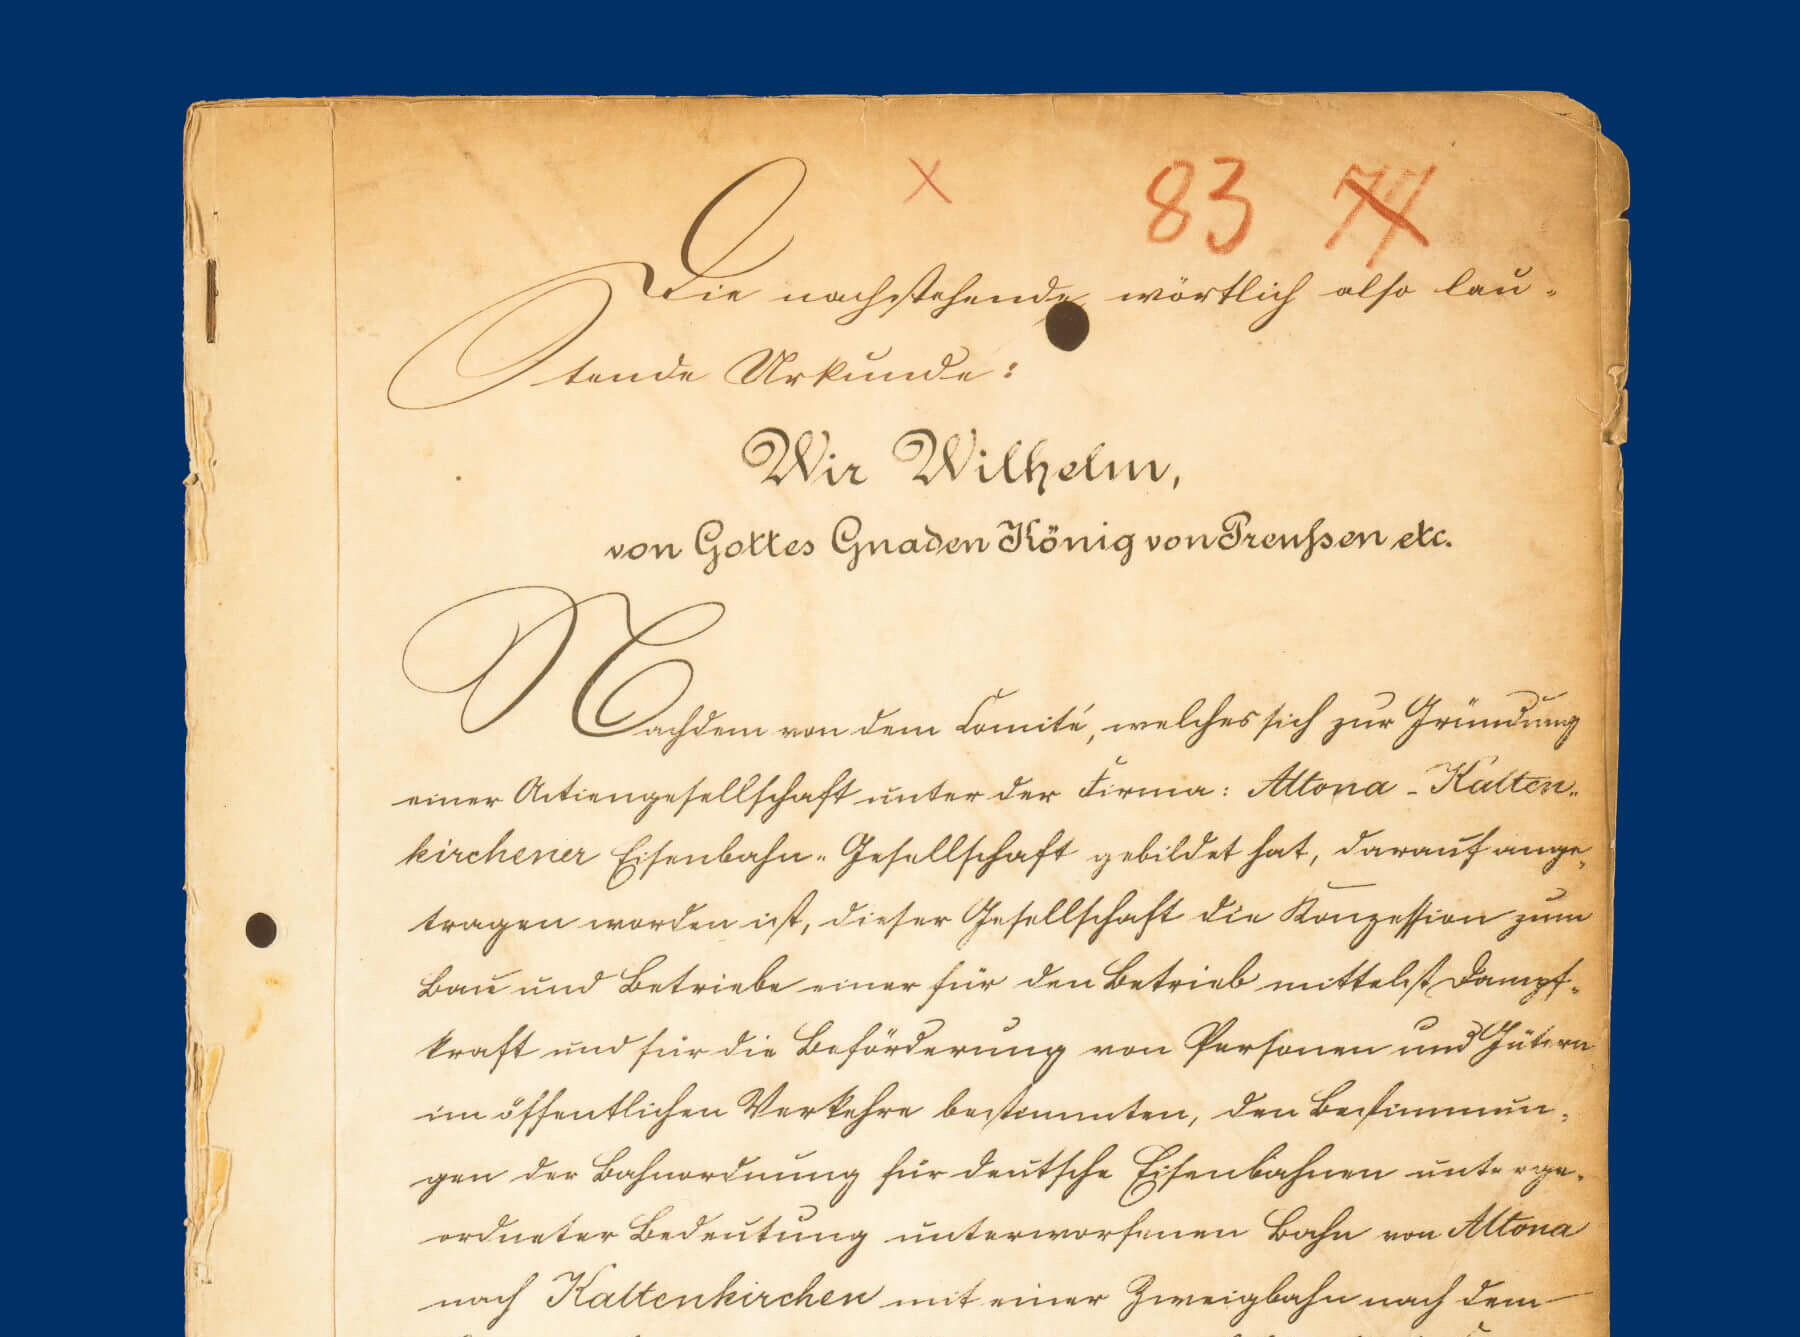 x 83 77
Die nachstehende wörtlich also lau-
tende Urkunde:
Wir Wilhelm,
von Gottes Gnaden König von Preußen etc.
Nachdem von dem Comité, welches sich zur Gründung
einer Actiengesellschaft unter der Firma: Altona-Kalten-
kirchener Eisenbahn-Gesellschaft gebildet hat, darauf ange-
tragen worden ist, dieser Gesellschaft die Konzession zum
Bau und Betriebe einer für den Betrieb mittelst Dampf-
kraft und für die Beförderung von Personen und Gütern
im öffentlichen Verkehre bestimmten, den Bestimmun-
gen der Bahnordnung für deutsche Eisenbahnen unterge-
ordneter Bedeutung unterworfenen Bahn von Altona
nach Kaltenkirchen mit einer Zweigbahn nach dem